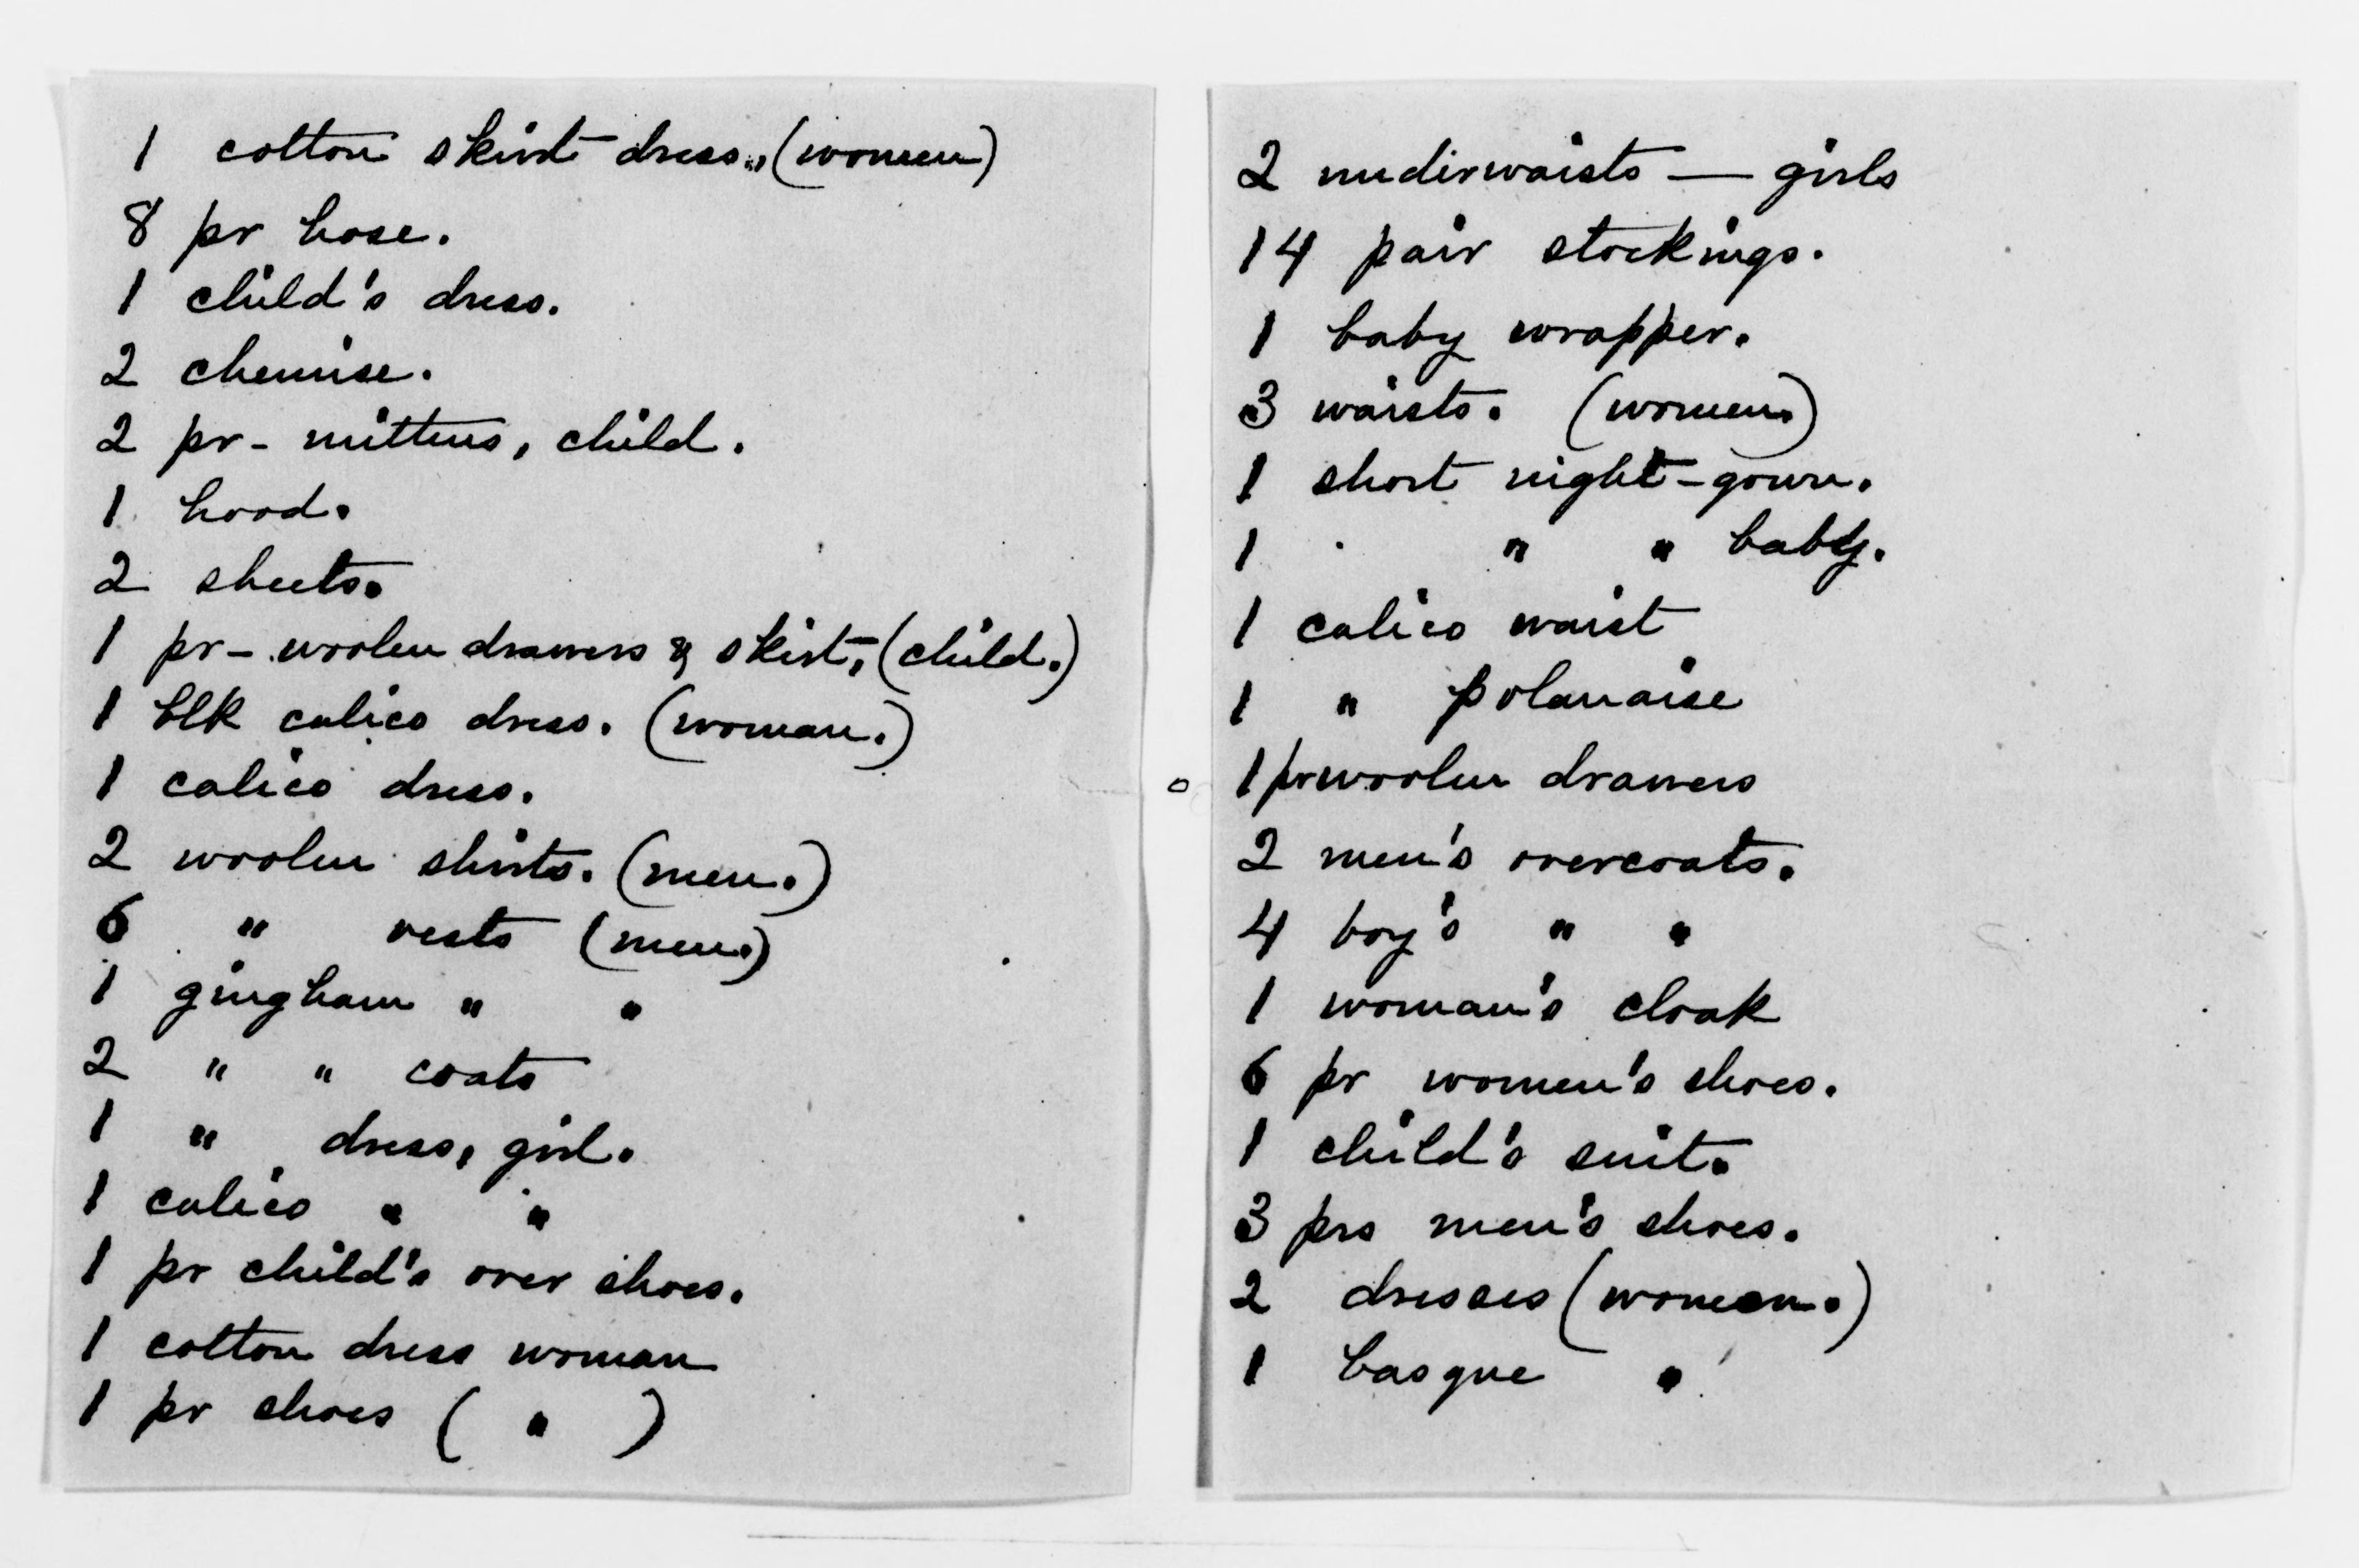 1 cotton skirt dress,, (women)
8 pr hose.
1 child's dress.
2 chemise.
2 pr - mittens, child.
1 hood.
2 sheets.
1 pr - woolen drawers & skirt, (child.)
1 blk calico dress. (woman.)
1 calico dress.
2 woolen shirts. (men.)
6 " vests (men.)
1 gingham " "
2 " " coats
1 " dress, girl.
1 calico " "
1 pr child's over shoes.
1 cotton dress woman
1 pr shoes ( " )
2 underwaists — girls
14 pair stockings.
1 baby wrapper.
3 waists. (women.)
1 short night-gown.
1 " " baby.
1 calico waist
1 " polanaise
1 pr woolen drawers
2 men's overcoats.
4 boy's " "
1 woman's cloak
6 pr women's shoes.
1 child's suit.
3 prs men's shoes.
2 dresses (women.)
1 basque "